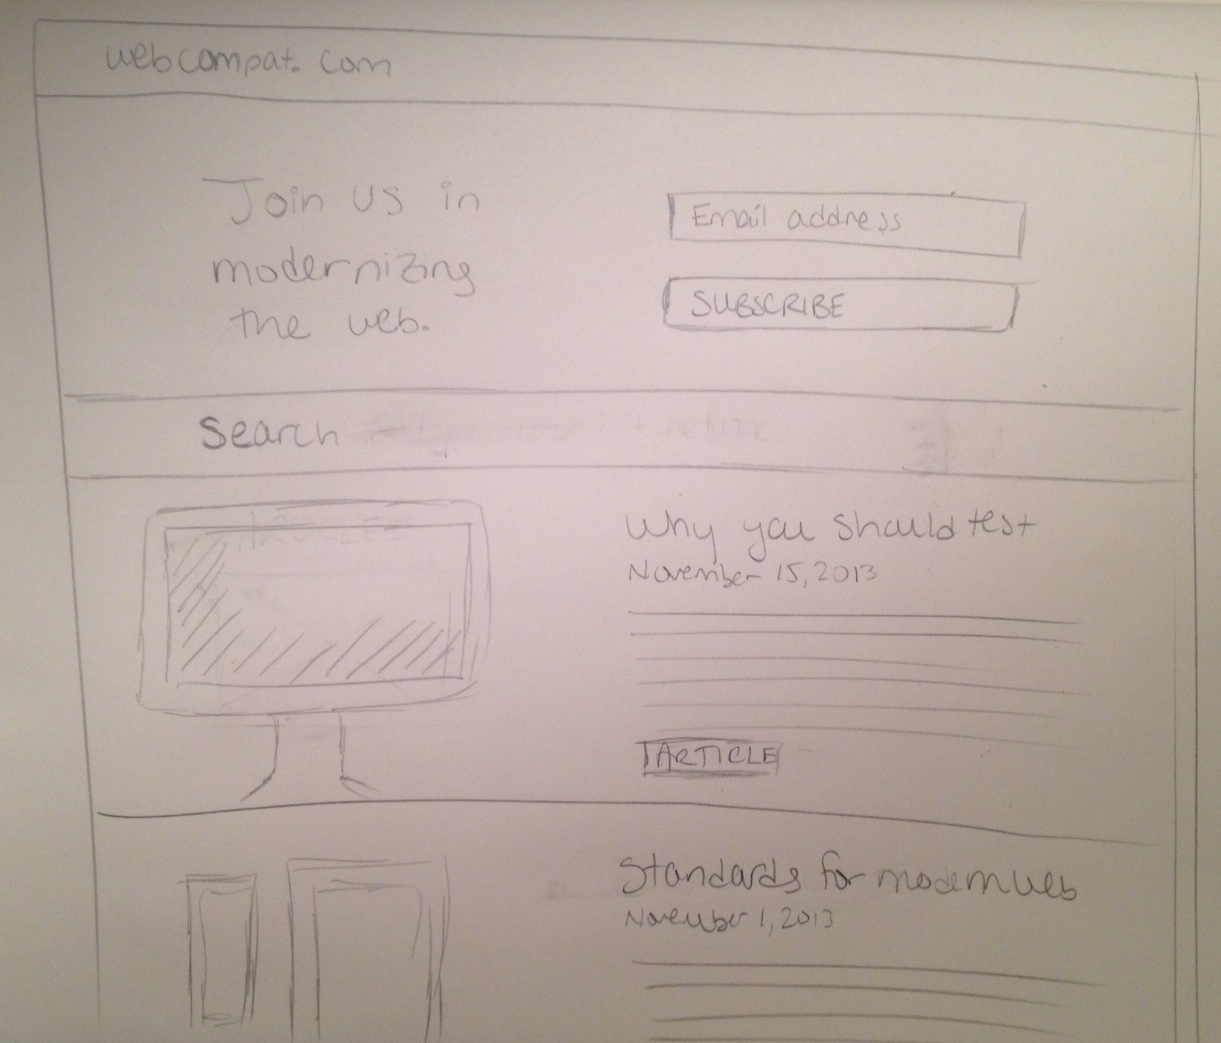 webcompat.com
Join us in
modernizing
the web.
Email address
SUBSCRIBE
Search
Why you should test
November 15, 2013
ARTICLE
Standards for modern web
November 1, 2013